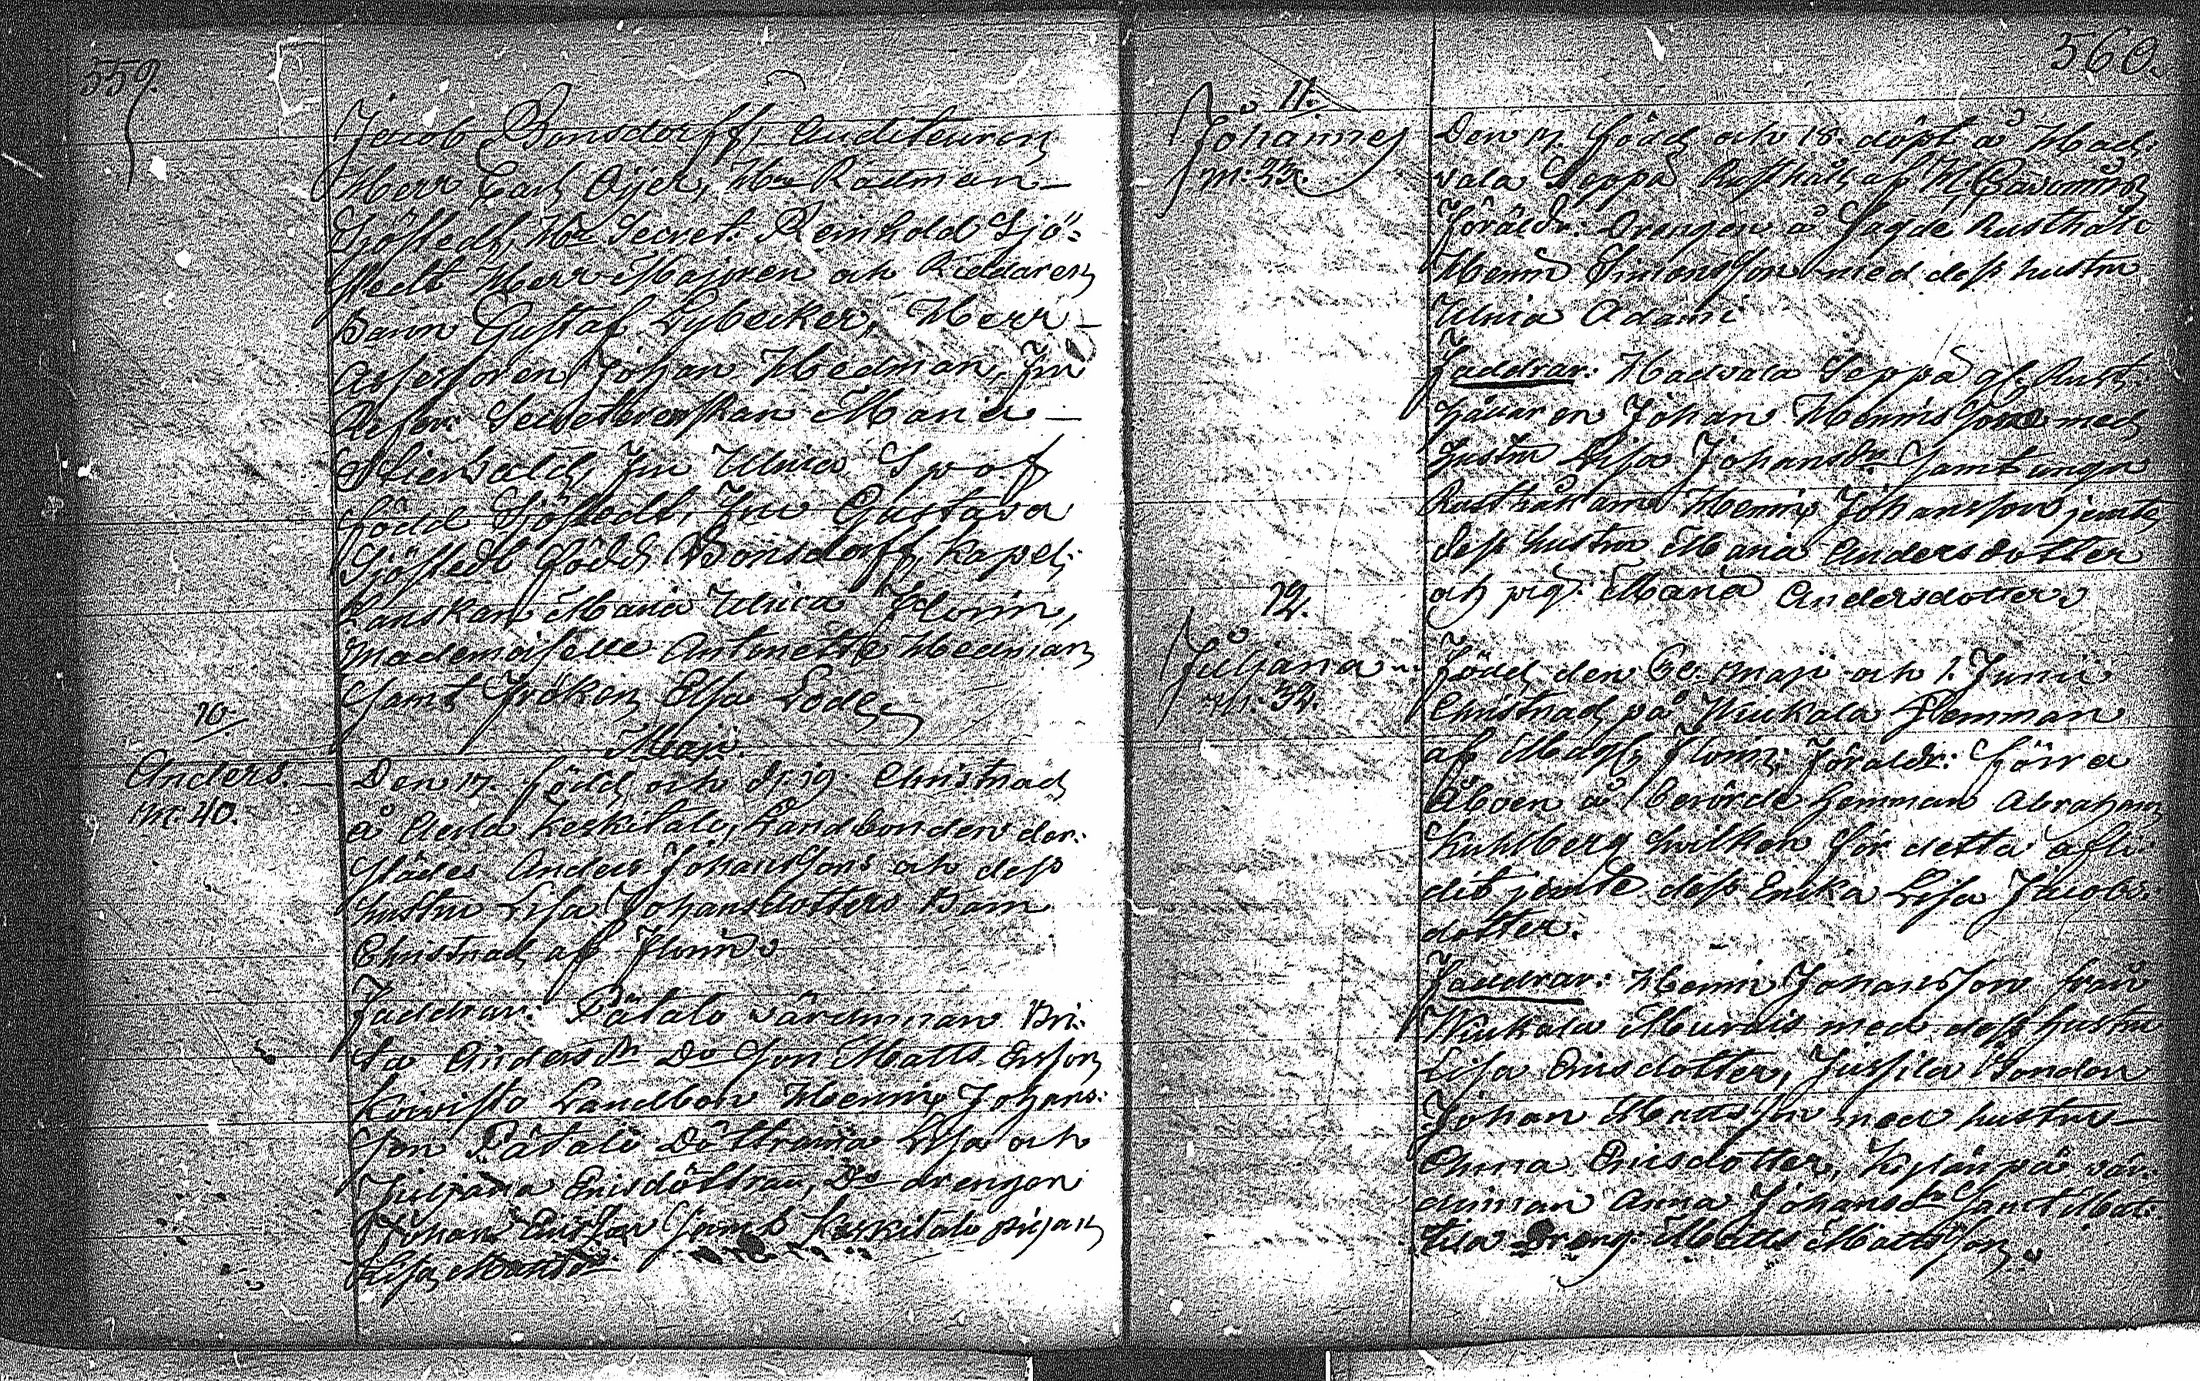 559.
Jacob Bonsdorff, Auditeuren
Herr Carl Öijer, Hr Rådman
Sjöstedt, Hr Secret. Reinhold Sjö-
stedt Herr Majoren och Riddaren
Baron Gustaf Lybecker, Herr
Assessoren Johan Hedman, Fru
Secreterarskan Maria
Fru Ulrica
född Sjöstedt, Fru Gustava
Sjöstedt född Bonsdorff, Kapel-
lanskan Maria Ulrica Florin,
Mademoiselle Antonette Hedman
samt Fröken Elsa Lode.
Maji
10.
Anders.
M. 40.
Den 17. född och d. 19 Christnad
å Aerla Keskitalo, Landbonden der-
städes Anders Johanssons och dess
hustru Lisa Johansdotters Barn
Christnad af Florin
Faddrar: Pätalo värdinnan Bri-
ta Andersdr Do Son Matts Ersson
Koivisto Landbon Henric Johans-
son Pätalo Döttrarna Lisa och
Juljana Ericsdöttrar, Do drengen
Johan Ericsson samt Keskitalo pigan
Lisa
560.
11.
Johannes
M. 23.
Den 17. född och 18. döpt å Had-
vala Seppä Rusthåll af H.
Föräldr: Drengen å sagde Rusthåll
Henric Simonsson med dess hustru
Ulrica Adami
Faddrar: Hadvala Seppä gl. Rust-
hållaren Johan Henricsson med
hustru Lisa Johansdr samt unga
Rusthållaren Henric Johansson jemte
dess hustru Maria Andersdotter
och pig. Maria Andersdotter
12.
Juljana
M. 32.
Född den 30. Maji och 1. Junii
Christnad på Wiukala Hemman
af Mag. Florin: Föräldr: förra
Åboen å berörde hemman Abraham
Kuhlberg hvilken för detta afli-
dit jemte dess Enka Lisa Jacobs-
dotter.
Faddrar: Henric Johansson från
Wiukala Murais med dess hustru
Lisa Ericsdotter, Jussila Bonden
Johan Mattsson med hustru
Anna Ericsdotter, Kylänpä vär-
dinnan Anna Johansdr samt Mat-
tila Dreng. Matts Mattsson